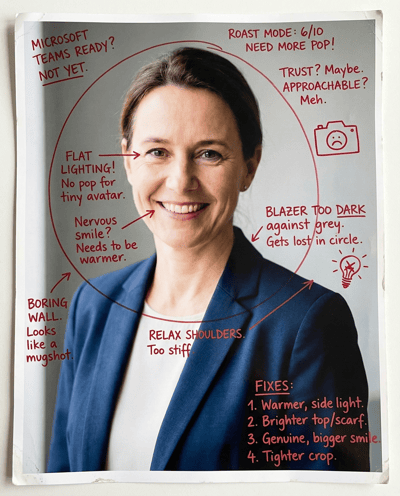 MICROSOFT
TEAMS READY?
NOT YET.
ROAST MODE: 6/10
NEED MORE POP!
TRUST? Maybe.
APPROACHABLE?
Meh.
FLAT
LIGHTING!
No pop for
tiny avatar.
Nervous
smile?
Needs to be
warmer.
BLAZER TOO DARK
against grey.
Gets lost in circle.
BORING
WALL.
Looks
like a
mugshot.
RELAX SHOULDERS.
Too stiff
FIXES:
1. Warmer, side light.
2. Brighter top/scarf.
3. Genuine, bigger smile.
4. Tighter crop.